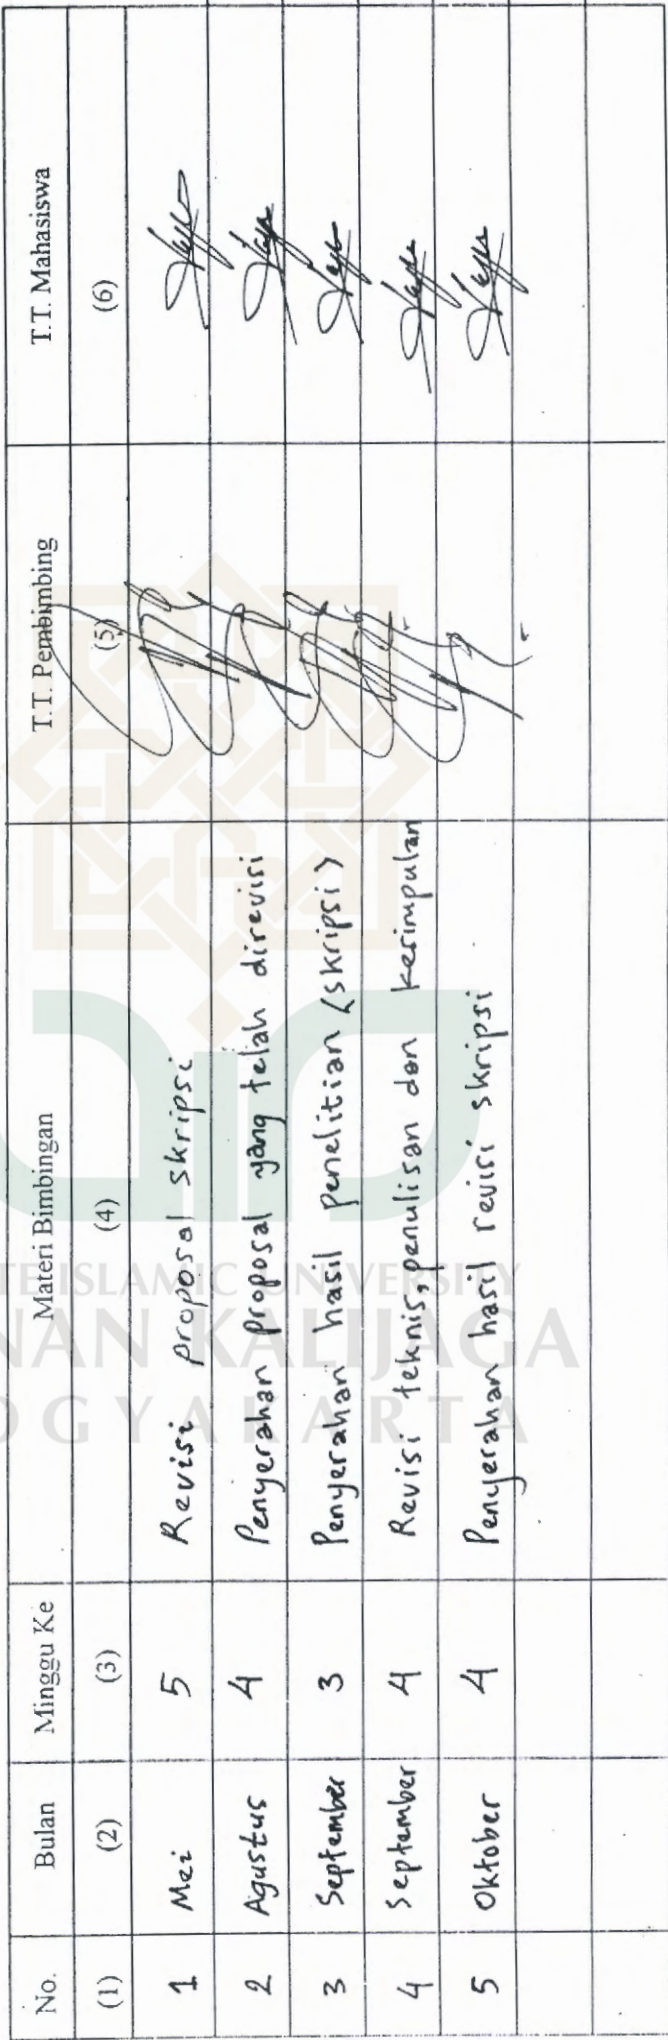 No. Bulan Minggu Ke Materi Bimbingan T.T. Pembimbing T.T. Mahasiswa
(1) (2) (3) (4) (5) (6)
1 Mei 5 Revisi proposal skripsi
2 Agustus 4 Penyerahan proposal yang telah direvisi
3 September 3 Penyerahan hasil penelitian (skripsi)
4 September 4 Revisi teknis, penulisan dan kesimpulan
5 Oktober 4 Penyerahan hasil revisi skripsi
ISLAMIC UNIVERSITY
NAN KALIJAGA
OGYAKARTA